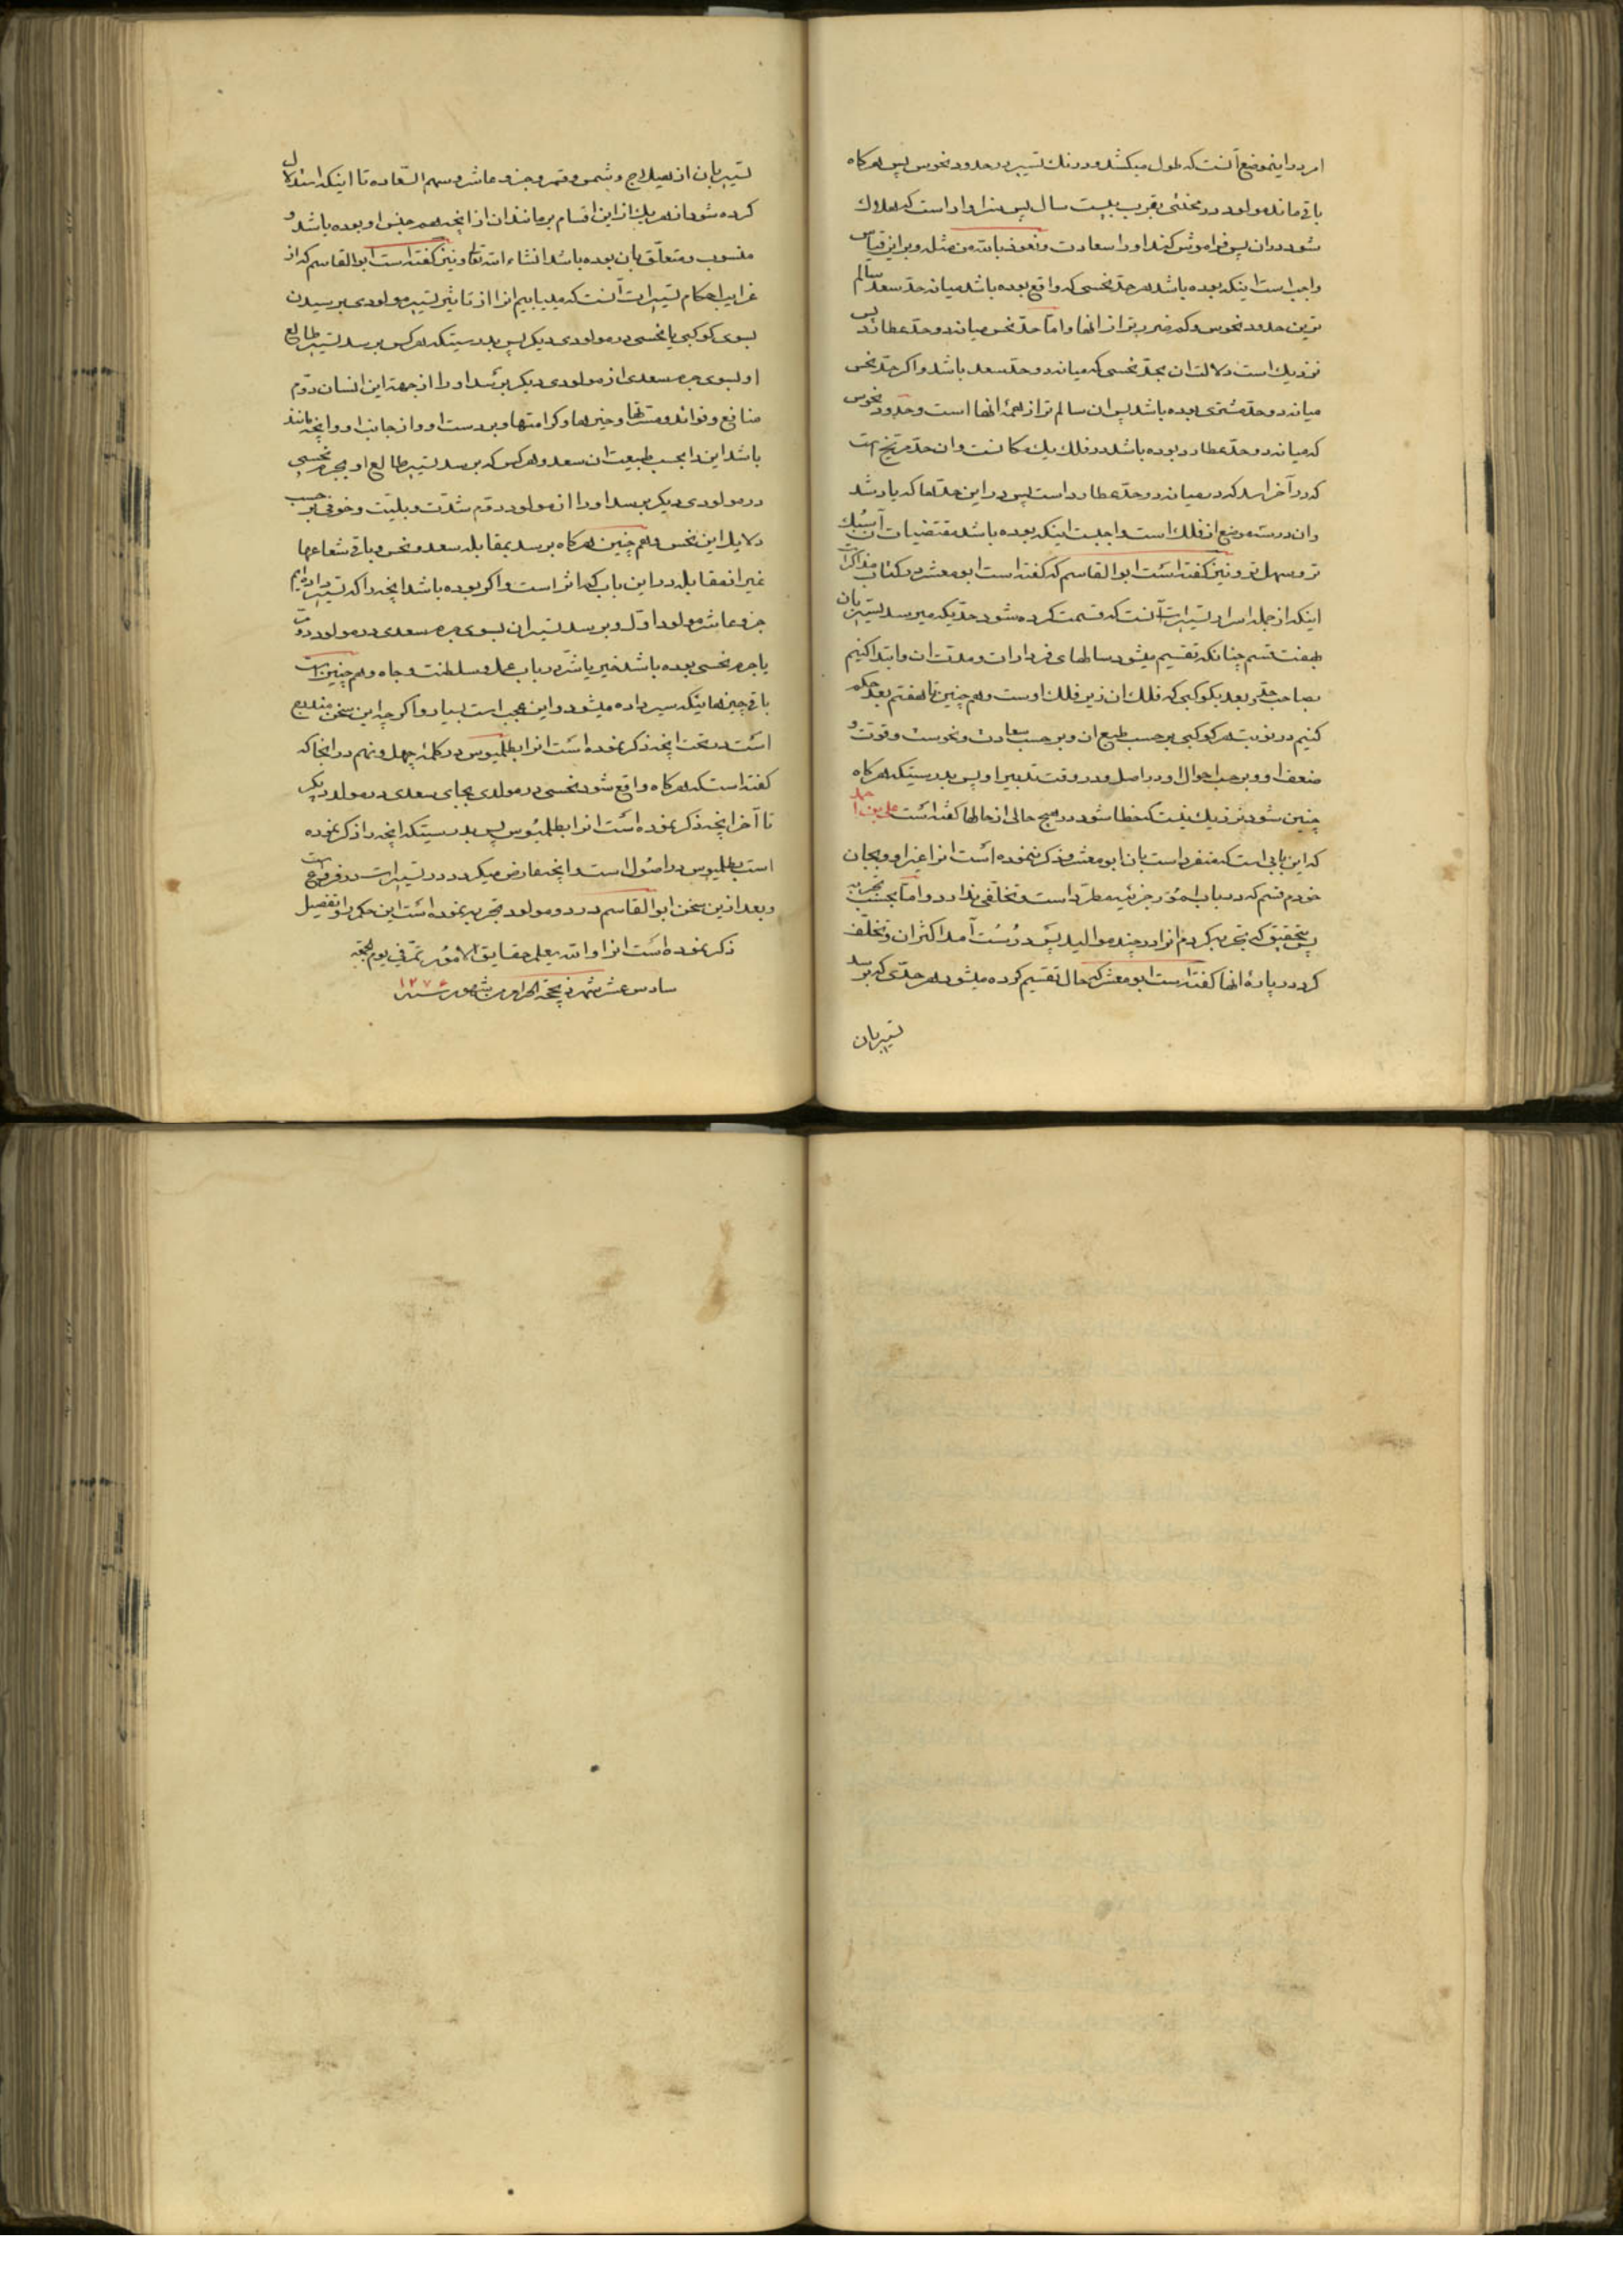 امر در اینموضع آنست که طول میکشد و درنك تسییر در حدود نحوس پس هرکاه
باقی ماند مولود در محنتی بقریب بیست سال پس سزاوار است که هلاك
شود در ان پس فراموش کند او را سعادت و نعوذ بالله من مثله و بر این قیاس
واجب است اینکه بوده باشد هر حد نحسی که واقع بوده باشد میانه حد سعد سالم
ترین حدود نحوس و کم ضررتر از انها و اما حد نحس میانه دو حد عطارد پس
نزدیك است دلالت ان بحد نحسی که میانه دو حد سعد باشد و اکر حد نحس
میانه دو حد مشتری بوده باشد پس ان سالم تر از همهٔ انها است و حدود نحوس
که میانه دو حد عطارد بوده باشد در فلك یك مکانست و ان حد مریخ است
که در آخر اسد که در میانه دو حد عطارد است پس در این حدها که یاد شد
و ان در سه موضع از فلك است واجبست اینکه بوده باشد مقتضیات ان آسبك
تر و سهل تر و نیز کفته است ابو القاسم که کفته است ابو معشر در کتاب مذاکرات
اینکه از جمله اسرار تسییرات آنست که قسمت کرده شود حدیکه میرسد تسییر بان
بهفت قسم چنانکه تقسیم میشود سالهای فردارات و مدت ان و ابتدا کنیم
بصاحب حد و بعد بکوکبی که فلك ان زیر فلك اوست و هم چنین تا هفتم بعد حکم
کنیم در نوبت هر کوکبی بر حسب طبع ان و بر حسب سعادت و نحوست و قوت و
ضعف او و بر حسب احوال او در اصل و در وقت تدبیر او پس بدرستیکه هرکاه
چنین شود نزدیك نیست که خطا شود در هیچ حالی از حالها کفته است علی بن احمد
که این بابی است که منفرد است بان ابو معشر و ذکر ننموده است انرا غیر او و بجان
خودم قسم که در باب امور جزئیه مطرد است و تخلفی ندارد و اما بحسب تجربه
پس بتحقیق که تجربه کردم انرا در چند موالید پس درست آمد اکثر ان و تخلف
کرد در پارهٔ انها کفته است ابو معشر که حال تقسیم کرده میشود هر حدی که برسد
تسییر بان
تسییر بان از هیلاج و شمس و قمر و جزو عاشر و سهم السعاده تا اینکه استدلال
کرده شود از هر یك از این اقسام بر مانند ان از انچه هم جنس او بوده باشد و
منسوب و متعلق بان بوده باشد انشاء الله تعا و نیز کفته است ابو القاسم که از
غرایب احکام تسییرات آنست که میبیابیم انرا از تاثیر تسییر مولودی برسیدن
بسوی کوکبی یا نحسی در مولودی دیکر پس بدرستیکه هر کس برسد تسییر طالع
او بسوی جرم سعدی از مولودی دیکر برسد او را از جهة این انسان دوم
منافع و فواید و مسرتها و خیرها و کرامتها و بر دست او و از جانب او و انچه مانند
باشد این را بحسب طبیعت ان سعد و هر کس که برسد تسییر طالع او بجرم نحسی
در مولودی دیکر برسد او را از مولود دوم شدت و بلیت و خوفی بر حسب
دلایل این نحس و هم چنین هرکاه برسد بمقابله سعد و نحس و باقی شعاعها
غیر از مقابله در این باب کم اثر است و اکر بوده باشد انچه را که تسییر داده ایم
جزو عاشر مولود اول و برسد تسییر ان بسوی جرم سعدی در مولود دوم
یا جرم نحسی بوده باشد خیر یا شر در باب عمل و سلطنت و جاه و هم چنین است
باقی چیزهائیکه سیر داده میشود و این عجب است بسیار و اکر چه این سخن مندرج
است در تحت انچه ذکر نموده است انرا بطلمیوس در کلمهٔ چهل و نهم در انجا که
کفته است که هرکاه واقع شود نحسی در مولدی بجای سعدی در مولد دیکر
تا آخر انچه ذکر نموده است انرا بطلمیوس پس بدرستیکه انچه را ذکر نموده
است بطلمیوس در اصول است و انچه عارض میکردد در تسییرات در فروع است
و بعد از این سخن ابو القاسم در دو مولود تجربه نموده است این حکم را و تفصیل
ذکر نموده است انرا و الله یعلم حقایق الامور تم فی یوم الجمعه
سادس عشر شهر ذیحجة الحرام من شهور سنه ۱۲۷۶